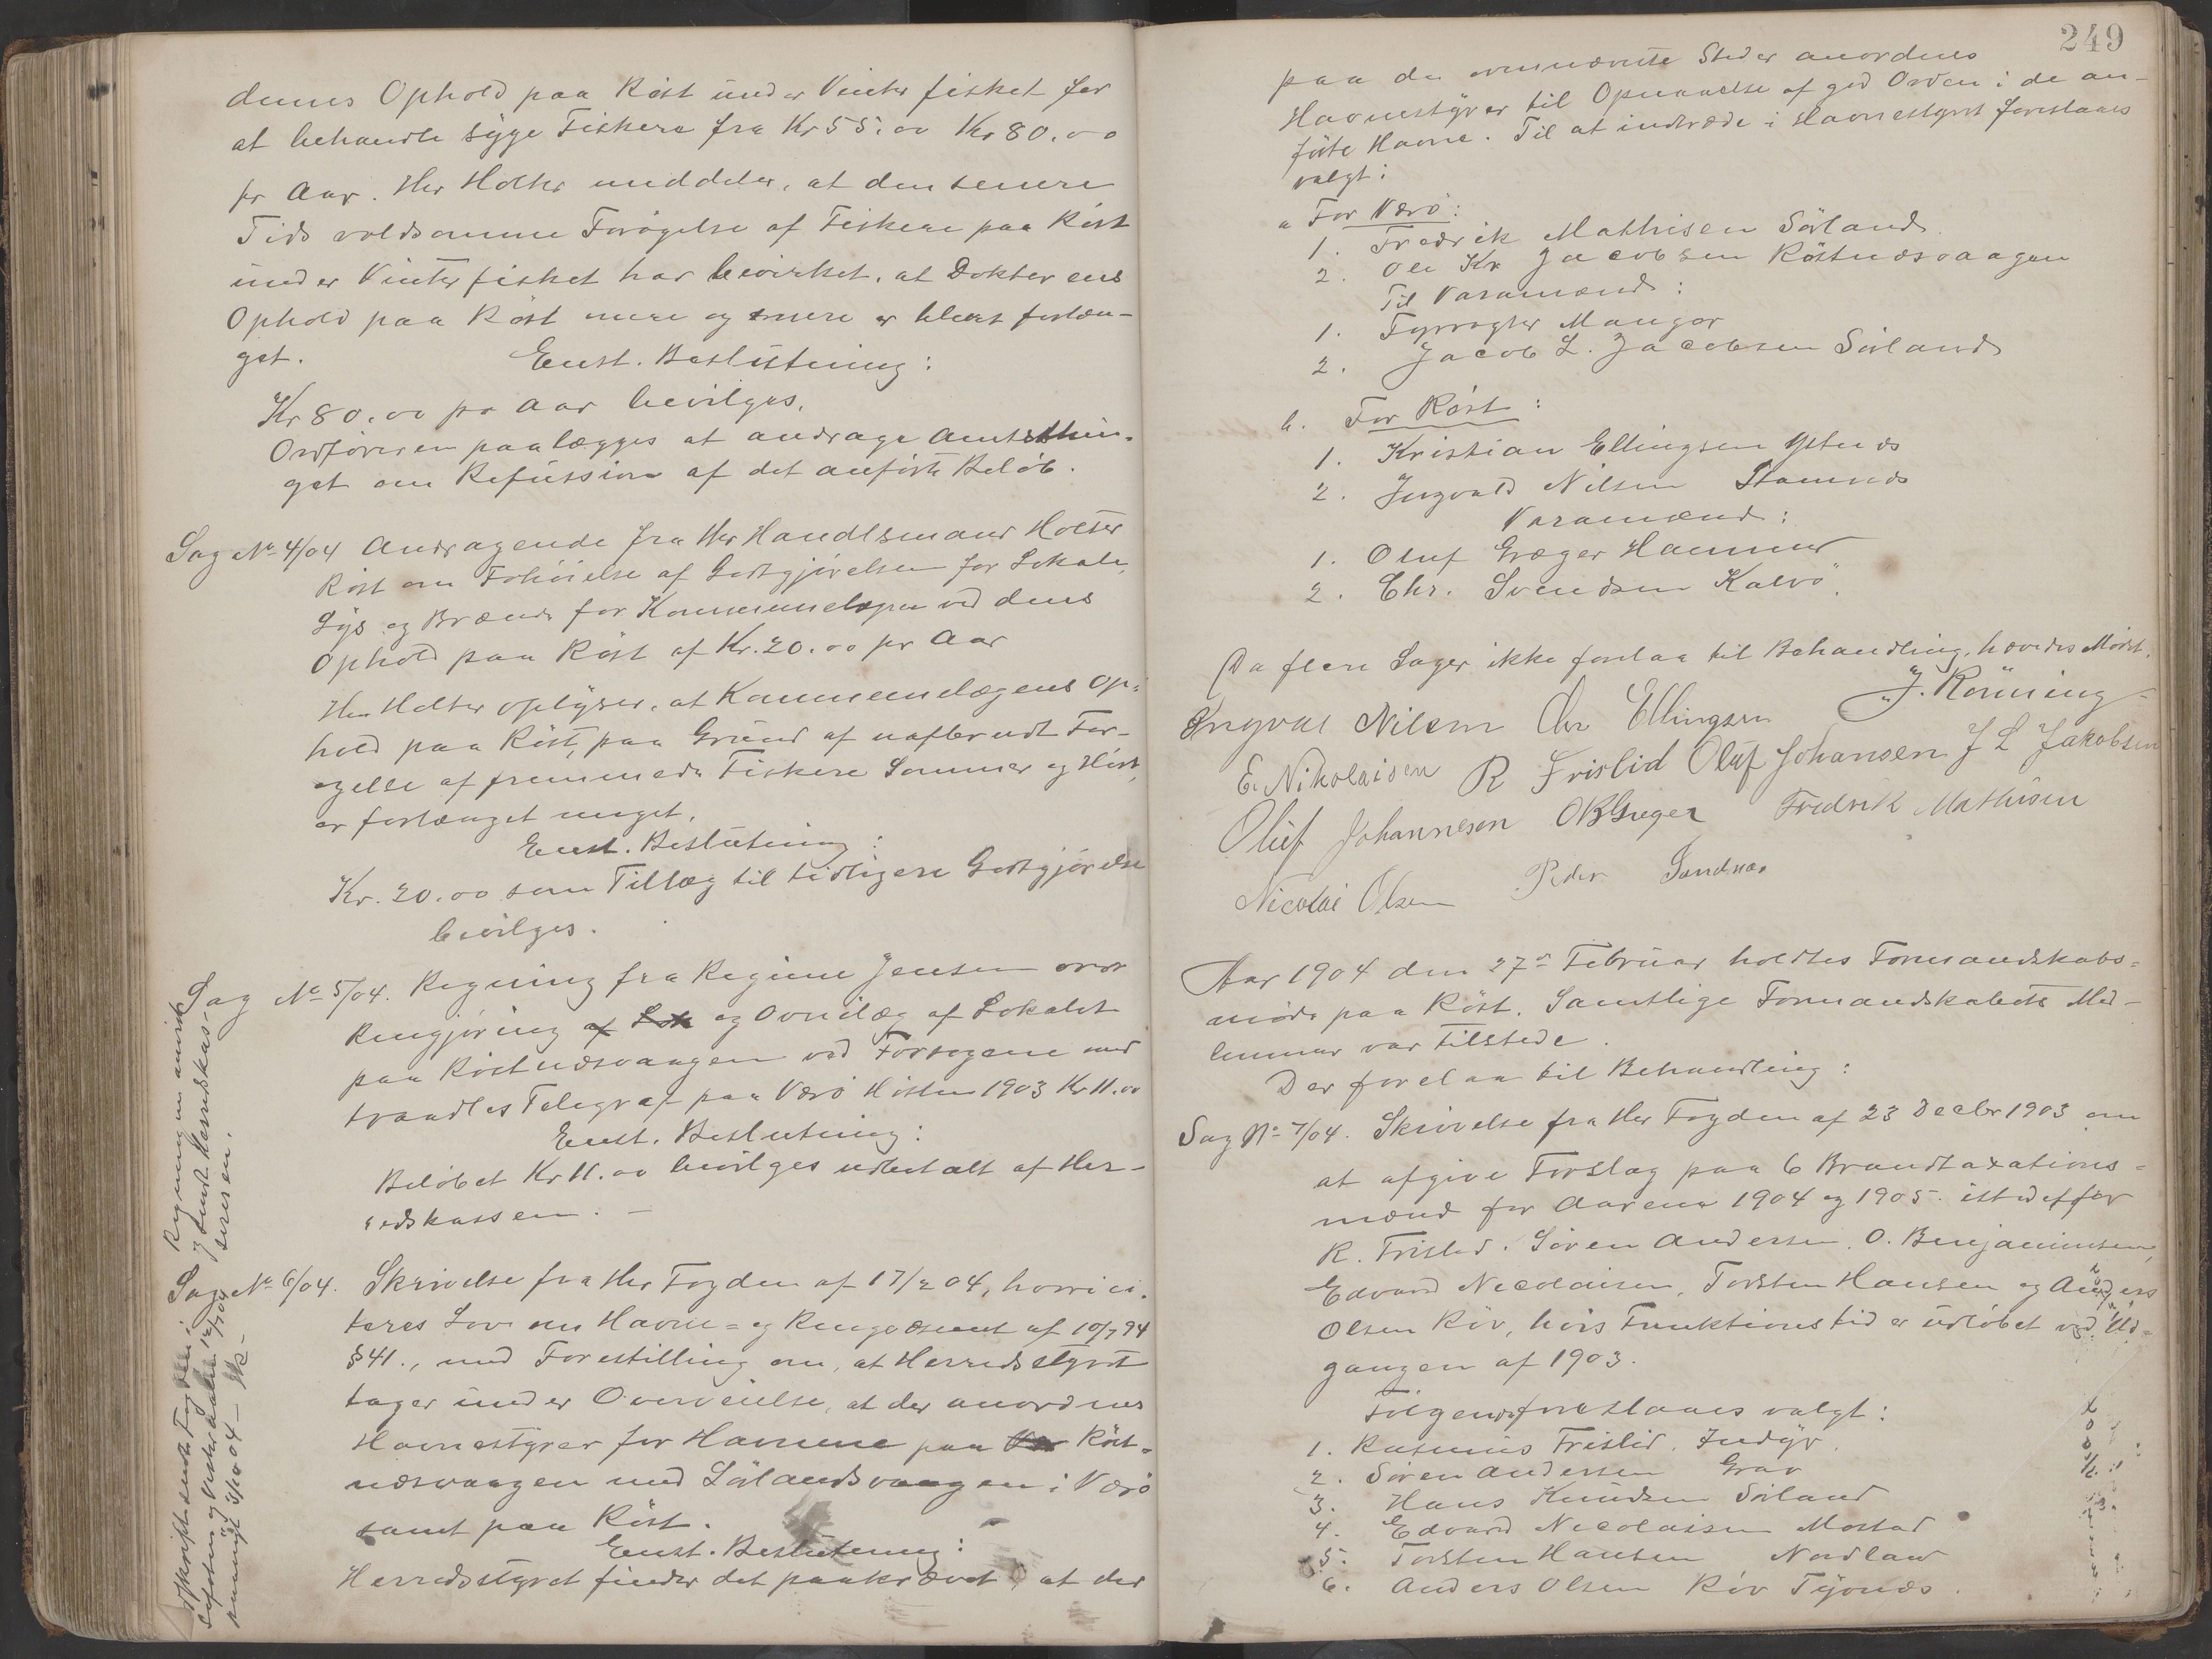 dennes Ophold paa Röst under Vinterfisket for
at behandle syge Fiskere fra Kr 55.00 Kr 80.00
pr Aar. Herr Holter meddeler, at den senere
Tids voldsomme Forøgelse af Fiskere paa Röst
under Vinterfisket har bevirket, at Dokterens
Ophold paa Röst mere og mere er blevet forlæn-
get.
Enst. Beslutning:
Kr 80.00 pr Aar bevilges.
Ordføreren paalægges at andrage Amtsthin-
get om Refussion af det anførte Beløb.
Sag No 4/04 Andragende fra Herr Handlsmand Holter
Röst om Forhöielse af Godtgjörelsen for Lokale,
Lys og Brænde for Kommunelægen ved dens
Ophold paa Röst af Kr. 20.00 pr Aar
Herr Holter oplyser, at Kommunelægens Op-
hold paa Röst, paa Grund af uafbrudt For-
øgelse af fremmede Fiskere Sommer og Höst,
er forlænget meget.
Enst. Beslutning:
Kr. 20.00 som Tillæg til tidligere Godtgjörelse
bevilges.
Sag No 5/04. Regning fra Regine Jensen over
Rengjöring af Lok og Ovnilæg af Lokalet
paa Röstnæsvaagen ved Forsøgene med
traadløs Telegraf paa Værö Hösten 1903 Kr 11.00
Enst. Beslutning:
Beløbet Kr 11.00 bevilges udbetalt af Her-
redskassen. —
Regningen anvist
og sendt Herredskas-
sereren.
Sag No 6/04. Skrivelse fra Her Fogden af 17/2 04, hvori ci-
teres Lov om Havne- og Ringvæsenet af 10/7 94
§ 41., med Forestilling om, at Herredsstyret
tager under Overveielse, at der anordnes
Havnestyrer for Havnene paa Vær Röst-
næsvaagen med Sörlandsvaagen i Værö
samt paa Röst.
Enst. Beslutning:
Herredsstyret finder det paakrævet, at der
Afskrift sendt Fogden i
249
paa de ovennævnte Steder anordnes
Havnestyrer til Opnaaelse af god Orden i de an-
förte Havne. Til at indtræde i Havnestyret foreslaaes
valgt:
a For Værö:
1. Fredrik Mathisen Sörland.
2. Ole Kr Jacobsen Röstnæsvaagen
Til Varamænd:
1. Fyrvogter Mangor
2. Jacob L. Jacobsen Sörland
b. For Röst:
1. Kristian Ellingsen Ystnæs
2. Ingvald Nilsen Stamnæs
Varamænd:
1. Oluf Græger Hammer
2. Chr. Svendsen Kalvö.
Da flere Sager ikke forelaa til Behandling, hævedes Mödet.
J. Rönning
Ingval Nilsen Chr Ellingsen
E. Nikolaisen R Frislid Oluf Johansen J L Jakobsen
Oluf Johannesen O B Greger Fredrik Mathisen
Nicolai Olsen Peder Sandnæs
Aar 1904 den 27de Februar holdtes Formandskabs-
möde paa Röst. Samtlige Formandskabets Med-
lemmer var tilstede.
Der forelaa til Behandling:
Sag No 7/04. Skrivelse fra Her Fogden af 23 Decbr 1903 om
at afgive Forslag paa 6 Brandtaxations-
mænd for Aarene 1904 og 1905. istedetfor
R. Frislid. Sören Andersen. O. Benjaminsen,
Edvard Nicolaisen, Torsten Hansen og Anders
Olsen Röv, hvis Funktionstid er udløbet ved Ud-
gangen af 1903.
Følgende foreslaaes valgt:
1. Rasmus Frislid, Indyr.
2. Sören Andersen Grav
3. Hans Knudsen Sörland
4. Edvard Nicolaisen Mostad
5. Torsten Hansen Nordland
6. Anders Olsen Röv Tyvnæs.